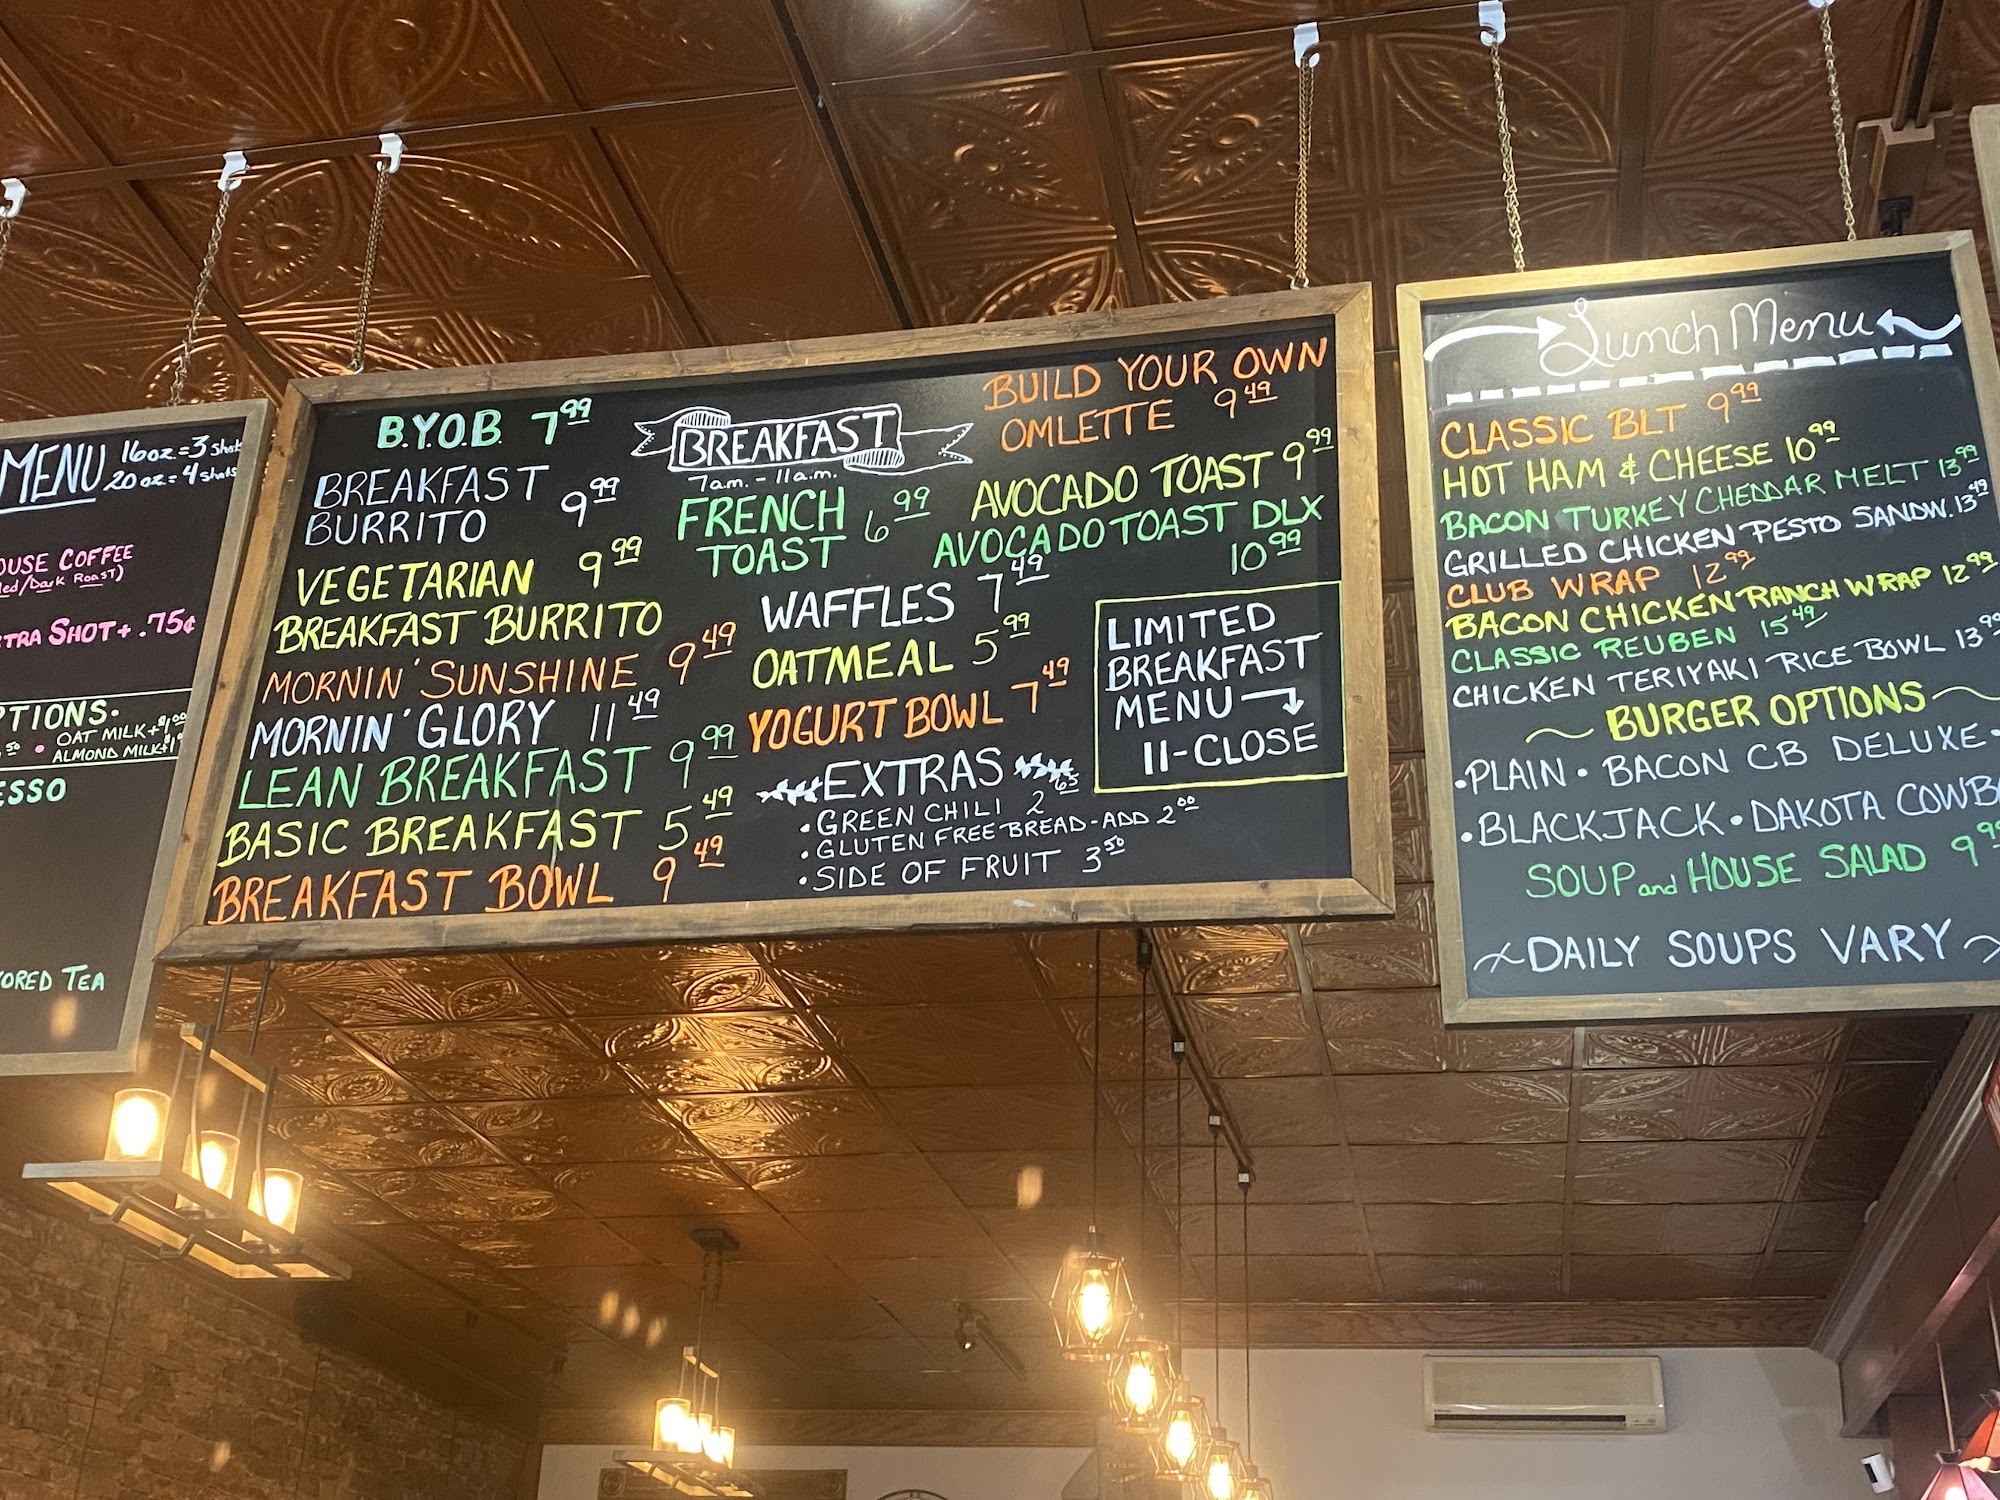 MENU 16oz.=3 shots
20oz.=4 shots
HOUSE COFFEE
Dark Roast)
EXTRA SHOT + .75¢
OPTIONS.
.50 • OAT MILK+$1.00
ALMOND MILK+
ESPRESSO
TEA
B.Y.O.B. 7.99
BREAKFAST
BURRITO 9.99
VEGETARIAN 9.99
BREAKFAST BURRITO
MORNIN' SUNSHINE 9.49
MORNIN' GLORY 11.49
LEAN BREAKFAST 9.99
BASIC BREAKFAST 5.49
BREAKFAST BOWL 9.49
BREAKFAST
7a.m. - 11a.m.
FRENCH
TOAST 6.99
WAFFLES 7.49
OATMEAL 5.99
YOGURT BOWL 7.49
EXTRAS
• GREEN CHILI 2.65
• GLUTEN FREE BREAD - ADD 2.00
• SIDE OF FRUIT 3.50
BUILD YOUR OWN
OMLETTE 9.49
AVOCADO TOAST 9.99
AVOCADO TOAST DLX
10.99
LIMITED
BREAKFAST
MENU
11-CLOSE
Lunch Menu
CLASSIC BLT 9.99
HOT HAM & CHEESE 10.99
BACON TURKEY CHEDDAR MELT 13.99
GRILLED CHICKEN PESTO SANDW. 13.49
CLUB WRAP 12.99
BACON CHICKEN RANCH WRAP 12.99
CLASSIC REUBEN 15.49
CHICKEN TERIYAKI RICE BOWL 13.99
BURGER OPTIONS
• PLAIN • BACON CB DELUXE •
• BLACKJACK • DAKOTA COWB
SOUP and HOUSE SALAD 9.99
DAILY SOUPS VARY